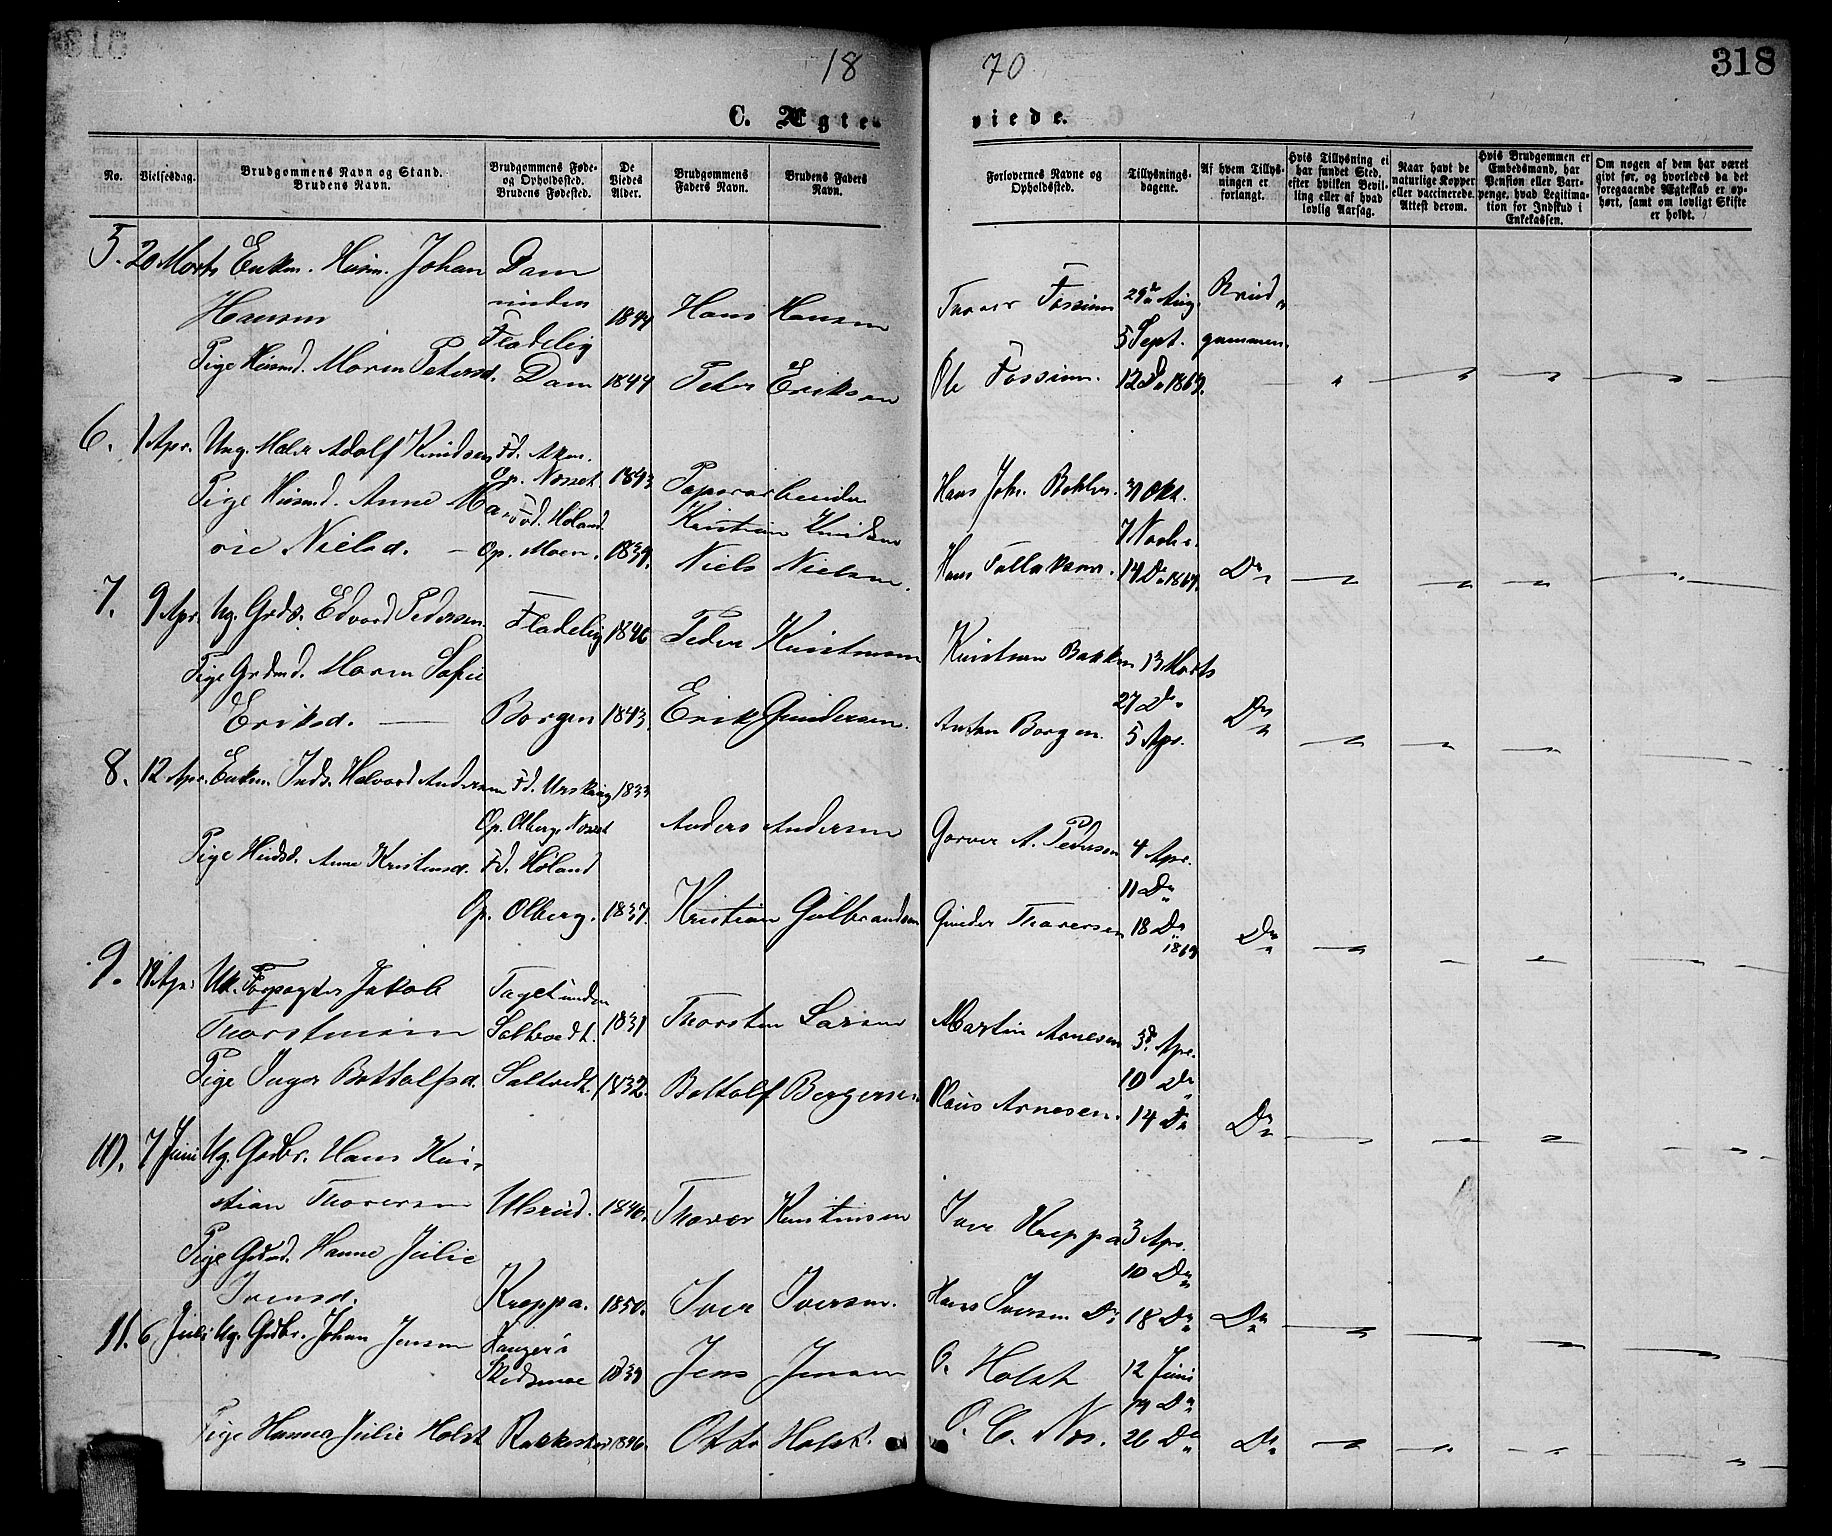 18 70
318
C. Ægte- viede.
No.
Vielsesdag.
Brudgommens Navn og Stand.
Brudens Navn.
Brudgommens Føde-
og Opholdsted.
Brudens Fødested.
De
Viedes
Alder.
Brudgommens
Faders Navn.
Brudens Faders
Navn.
Forlovernes Navne og
Opholdsted.
Tillysnings-
dagene.
Af hvem Tillys-
ningen er
forlangt.
Hvis Tillysning ei
har fundet Sted,
efter hvilken Bevil-
ling eller af hvad
lovlig Aarsag.
Naar havt de
naturlige Kopper
eller vaccinerede.
Attest derom.
Hvis Brudgommen er
Embedsmand, har
Pension eller Vart-
penge, hvad Legitima-
tion for Indskud i
Enkekassen.
Om nogen af dem har været
givt før, og hvorledes da det
foregaaende Ægteskab er op-
hørt, samt om lovligt Skifte
er holdt.
5. 20 Marts Enkm. Husm. Johan
Hansen
Dam
under
Fladeby
1844 Hans Hansen
Thorer Fossum 29de Aug. Brud-
5 Sept. gommen.
Pige Husmd. Maren Petersd. Dam 1844 Peter Eriksen
Ole Fossum. 12 Do 1869.
6. 1 Apr. Ung. Maler Adolf Knudsen Fd. Aker.
Op. Nosset. 1843 Papirarbeider
Kristian Knudsen
Hans Joh. 31 Okt.
7 Novbr.
Pige Husmd. Anne Ma-
rie Nielsd. — Fød. Høland
Op. Moen. 1839. Niels Nielsen.
Hans 14 Do 1869. Do
7. 9 Apr. Ug. Grds. Edvard Pedersen Fladeby 1846 Peder Kristensen
Kristian Bakken 13 Marts
27 Do
Pige Grdmd. Maren Sofie
Eriksd. — Borgen 1843. Erik Gundersen.
Anton Borgen. 5 Apr. Do
8. 12 Apr. Enkm. Inds. Halvord Andersen Fd. Urskoug 1833
Op. Olberg Nosset
Anders Andersen
A. Pedersen 4 Apr.
11 Do
Pige Husd. Anne Kristensd. Fd. Høland
Op. Olberg. 1837. Kristian Gulbrandsen
Gunder Thoresen 18 Do
1869 Do
9. 18 Apr. Forpagter Jakob
Thorstensen
under
Saltvedt. 1831 Thorsten Larsen
Martin Arnesen 3de Apr.
10 Do
Pige Inger Bottolfsd. Saltvedt. 1832. Bottolf Bergersen
Klaus Arnesen. 14 Do Do
10. 7 Juni Ug. Grdbr. Hans Kri-
stian Thoresen Ulsrud. 1846. Thorer Kristensen
Iver Kroppa 3 Apr.
10 Do
Pige Grdmd. Hanne Julie
Iversd. Kroppa. 1850. Iver Iversen.
Hans Iversen Do 18 Do Do
11. 6 Juli Ug. Grdbr. Johan Jensen
Skedsmoe 1839 Jens Jensen
O. Holst 12 Juni
19 Do
Pige Hanna Julie Holst Rakkestad 1846. Otto Holst.
O. C. Nos. 26 Do Do